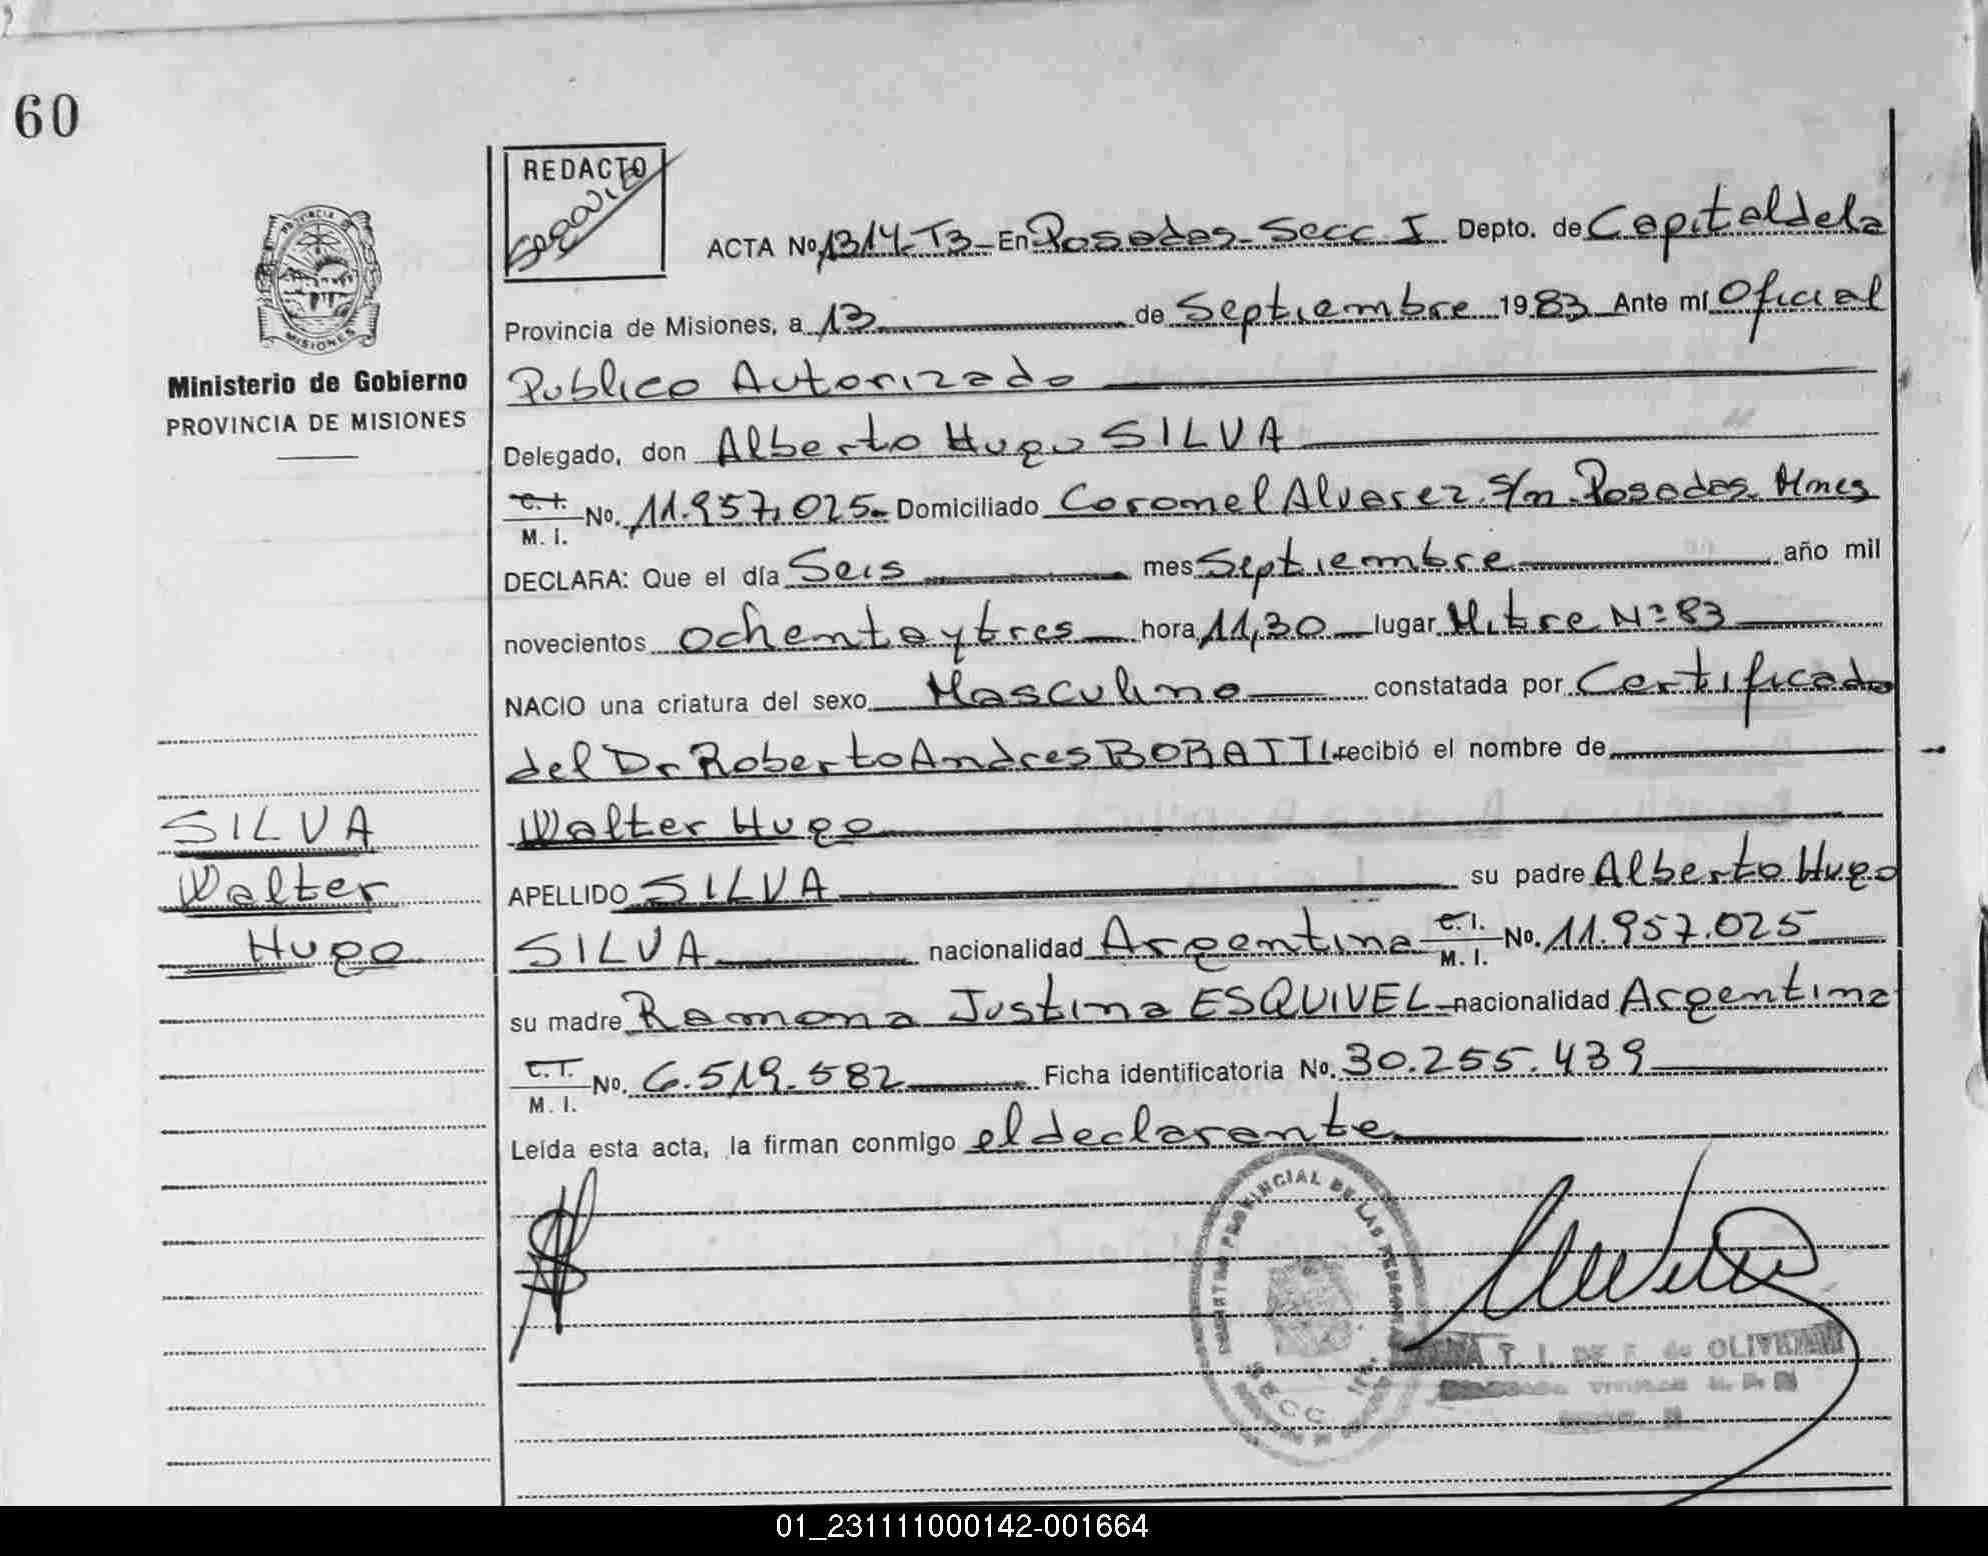 60
REDACTO
PROVINCIA DE
MISIONES
Ministerio de Gobierno
PROVINCIA DE MISIONES
ACTA No 1314-T3- En Posadas- Secc. I Depto. de Capital de la
Provincia de Misiones, a 13 de Septiembre 1983 Ante mí Oficial
Publico Autorizado
Delegado, don Alberto Hugo SILVA
C. I. M. I. No. 11.957.025- Domiciliado Coronel Alvarez s/n. Posadas. Mnes
DECLARA: Que el día Seis mes Septiembre año mil
novecientos ochenta y tres hora 11,30 lugar Mitre Nº 83
NACIO una criatura del sexo Masculino constatada por Certificado
del Dr Roberto Andres BORATTI recibió el nombre de
Walter Hugo
APELLIDO SILVA su padre Alberto Hugo
SILVA nacionalidad Argentina C. I. M. I. No. 11.957.025
su madre Ramona Justina ESQUIVEL nacionalidad Argentina
C. I. M. I. No. 6.519.582 Ficha identificatoria No. 30.255.439
Leída esta acta, la firman conmigo el declarante
SILVA
Walter
Hugo
PROVINCIAL DE LAS
SECC
T. I. DE F. de OLIVEIRA
01_231111000142-001664